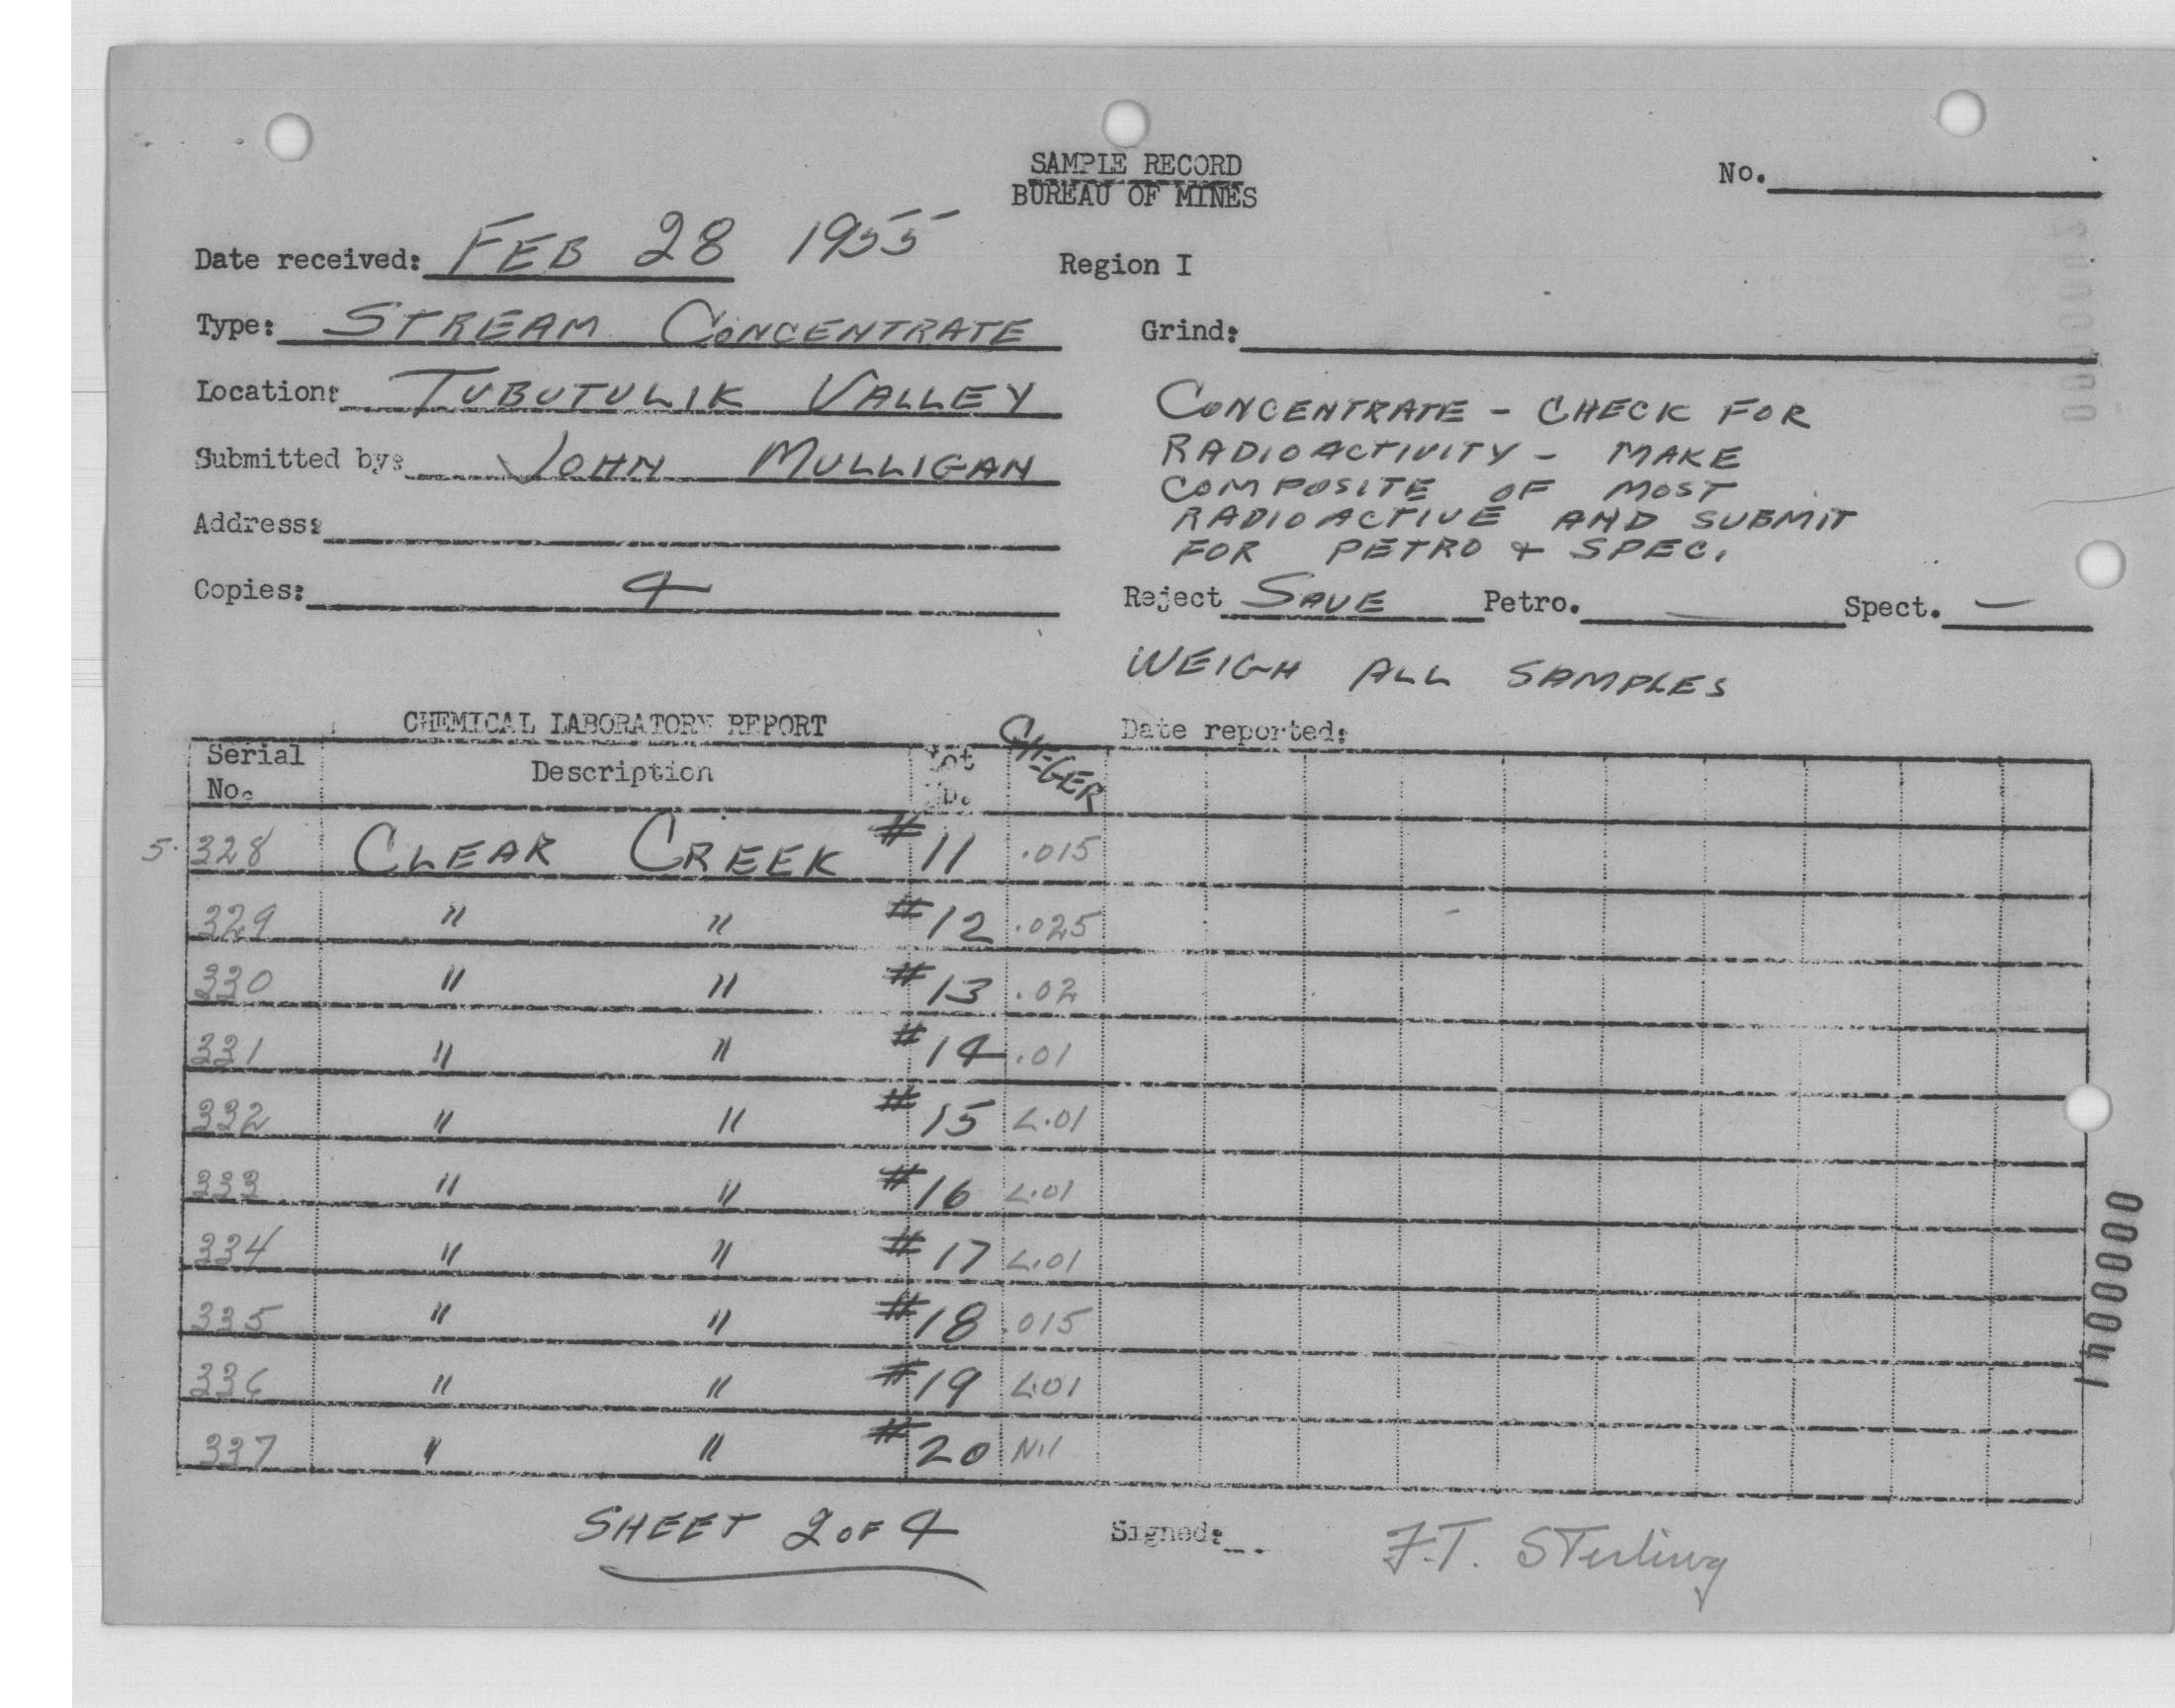 SAMPLE RECORD
BUREAU OF MINES
No.
Date received: FEB 28 1955
Region I
Type: STREAM CONCENTRATE
Grind:
Location: TUBUTULIK VALLEY
Submitted by: JOHN MULLIGAN
Address:
Copies: 4
CONCENTRATE - CHECK FOR
RADIOACTIVITY - MAKE
COMPOSITE OF MOST
RADIOACTIVE AND SUBMIT
FOR PETRO & SPEC.
Reject SAVE Petro. — Spect. —
WEIGH ALL SAMPLES
CHEMICAL LABORATORY REPORT
Date reported:
Serial No. Description Lot No. GEIGER
5. 328 CLEAR CREEK #11 .015
329 " " #12 .025
330 " " #13 .02
331 " " #14 .01
332 " " #15 <.01
333 " " #16 <.01
334 " " #17 <.01
335 " " #18 .015
336 " " #19 <.01
337 " " #20 Nil
SHEET 2 OF 4
Signed: F.T. Sterling
00000041